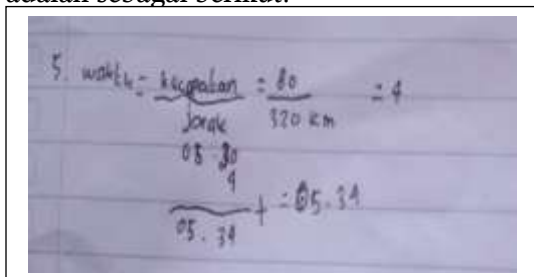 adalah sebagai berikut:
5. waktu = kecepatan = 80 = 4
Jarak 320 km
05.30
4
+ = 05.34
05.34